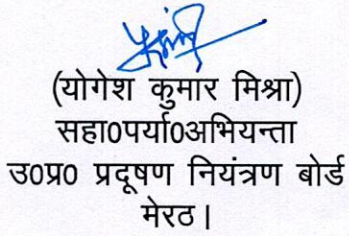 (योगेश कुमार मिश्रा)
सहा0पर्या0अभियन्ता
उ0प्र0 प्रदूषण नियंत्रण बोर्ड
मेरठ।